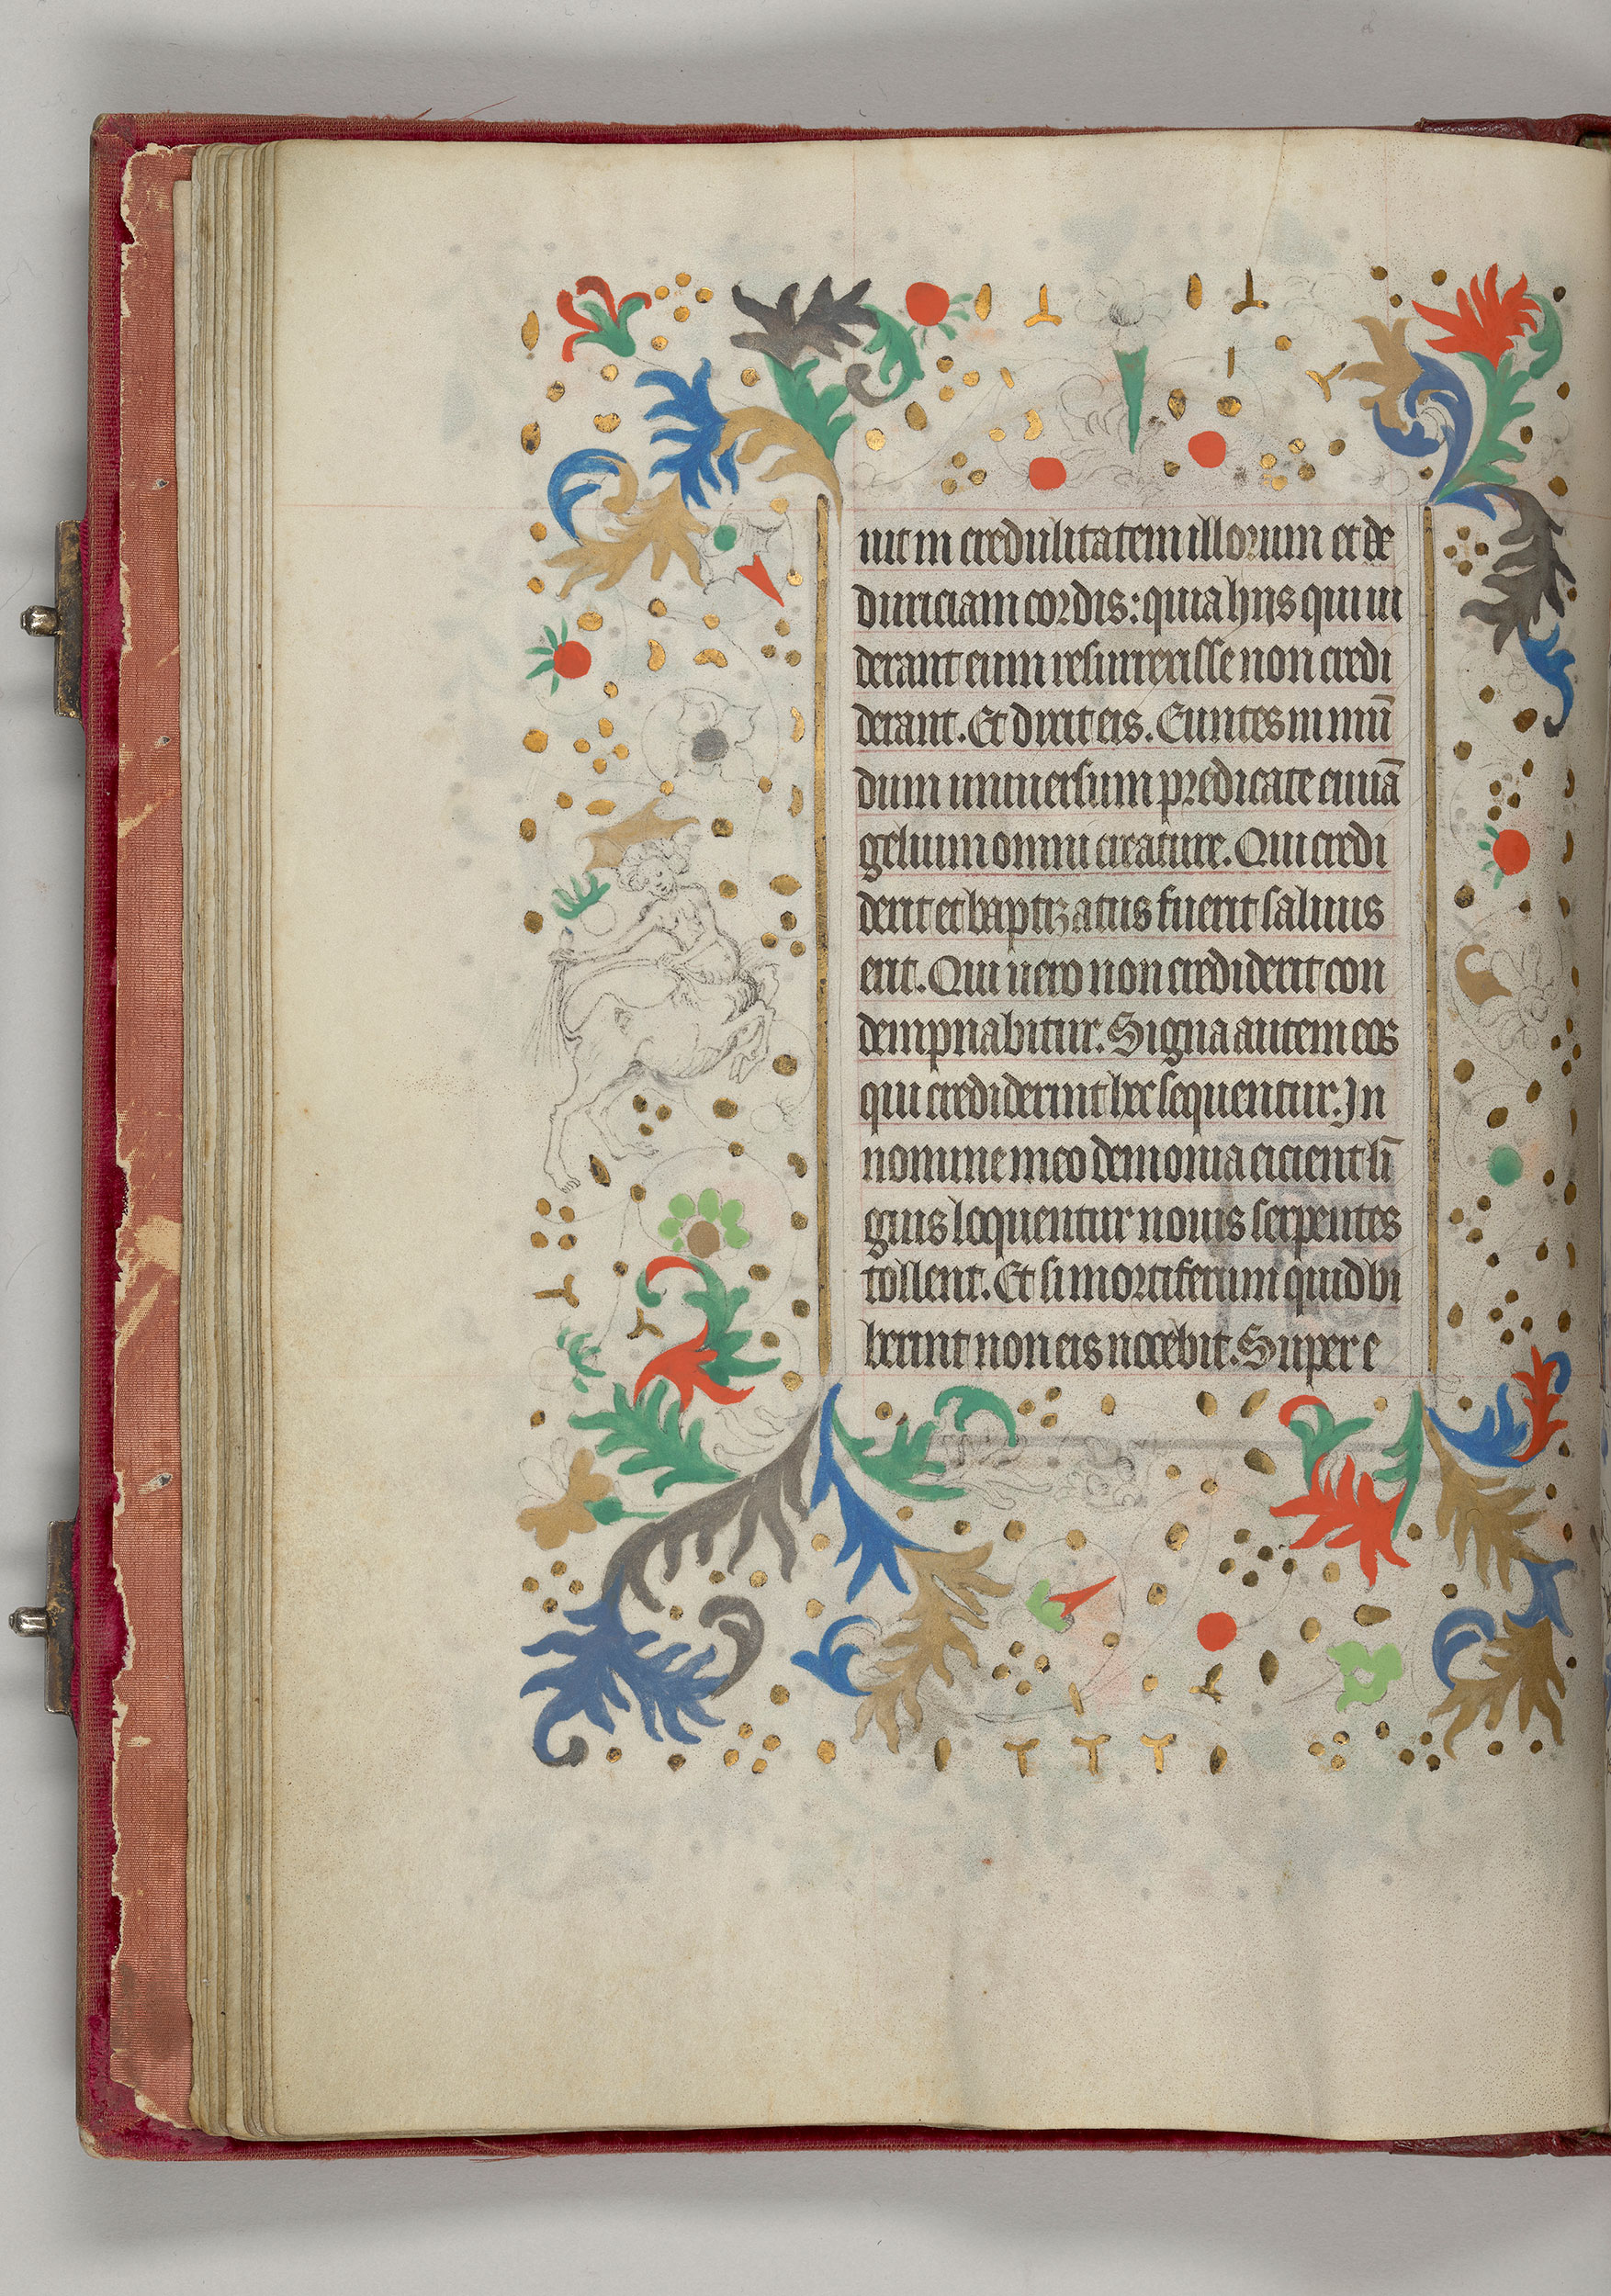 uit in credulitatem illorum et de
duriciam cordis: quia hijs qui ui
derant eum resurrexisse non credi
derant. Et dixit eis. Euntes in mū
dum uniuersum predicate euuā
gelium omni creature. Qui credi
derit et baptizatus fuerit saluus
erit. Qui uero non crediderit con
dempnabitur. Signa autem eos
qui crediderint hec sequentur. In
nomine meo demonia eicient li̅
guis loquentur nouis serpentes
tollent. Et si mortiferum quid bi
berint non eis nocebit. Super e